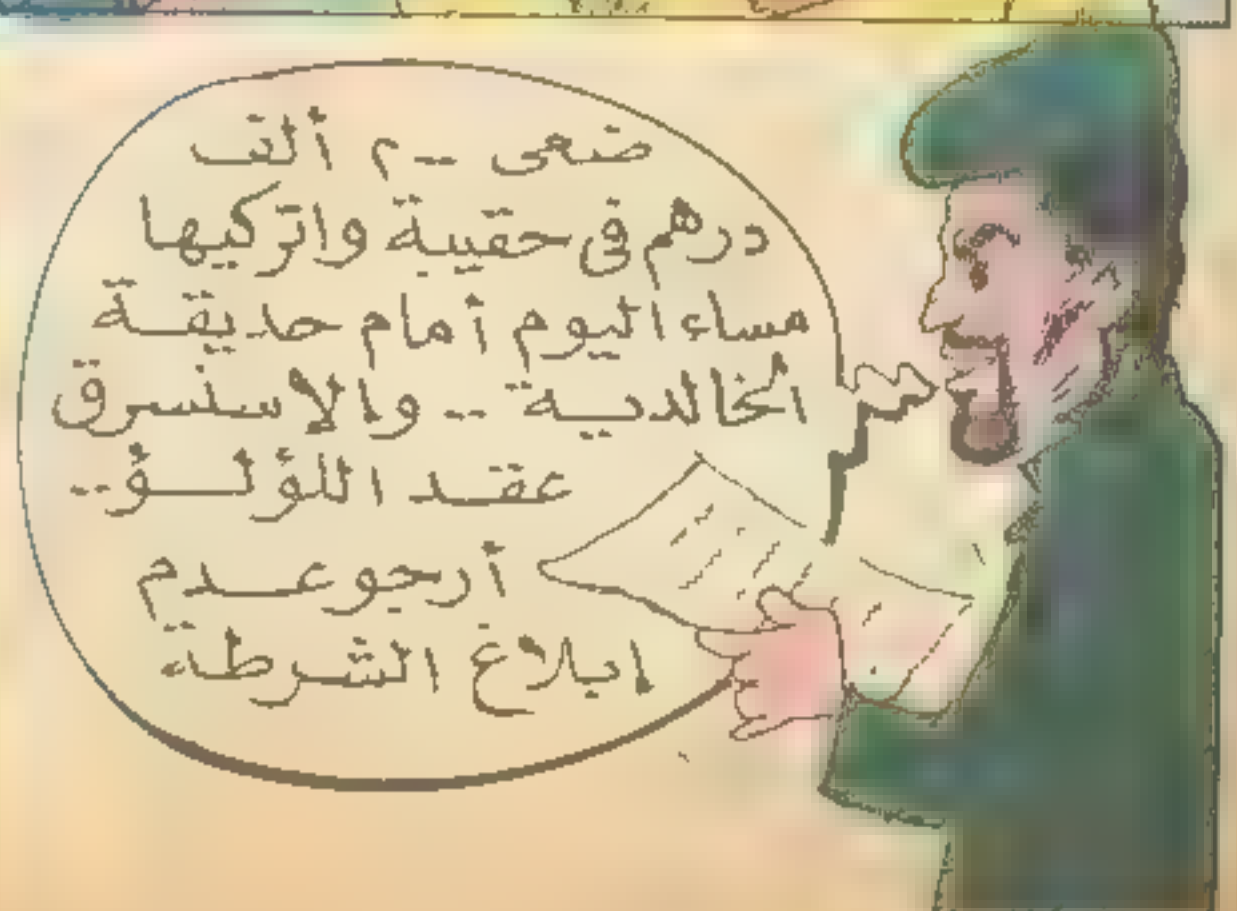 ضعى ٢٠٠ ألف
درهم فى حقيبة واتركيها
مساء اليوم أمام حديقة
الخالدية -- والا سنسرق
عقد اللؤلؤ --
أرجو عدم
إبلاغ الشرطة